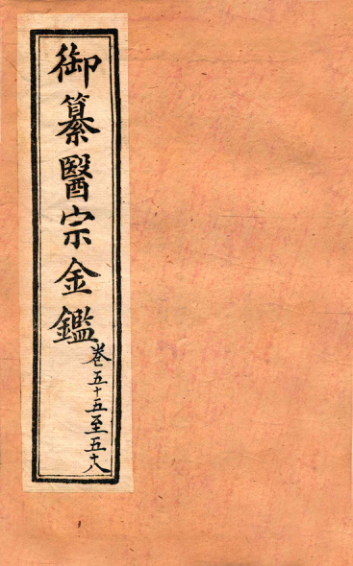 御纂醫宗金鑑
卷五十五至五十八